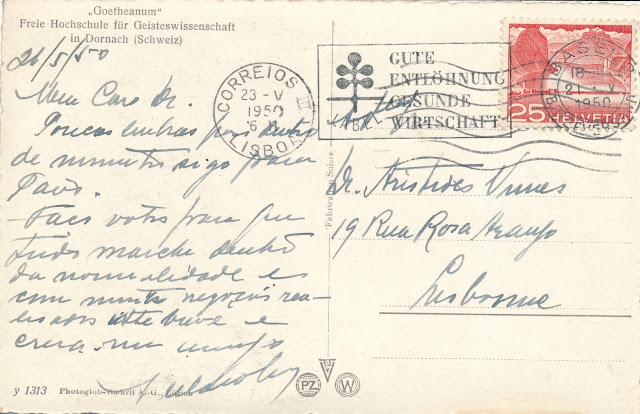 „Goetheanum"
Freie Hochschule für Geisteswissenschaft
in Dornach (Schweiz)
21/5/50
Meu Caro Dr.
Poucas linhas pois dentro
de minutos sigo para
Paris.
Faço votos para que
tudo marche dentro
da normalidade e
com muitos negócios rea-
lisados até breve e
creia-me amigo
CORREIOS
23-V
1950
LISBOA
GUTE
ENTLÖHNUNG
GESUNDE
WIRTSCHAFT
BASEL
18
21-V
1950
25 HELVETIA
Dr. Aristides
19 Rua Rosa Araujo
Lisbonne
Fabrication Suisse
y 1313 Photoglob-Wehrli A.-G., Zürich
PZ
W